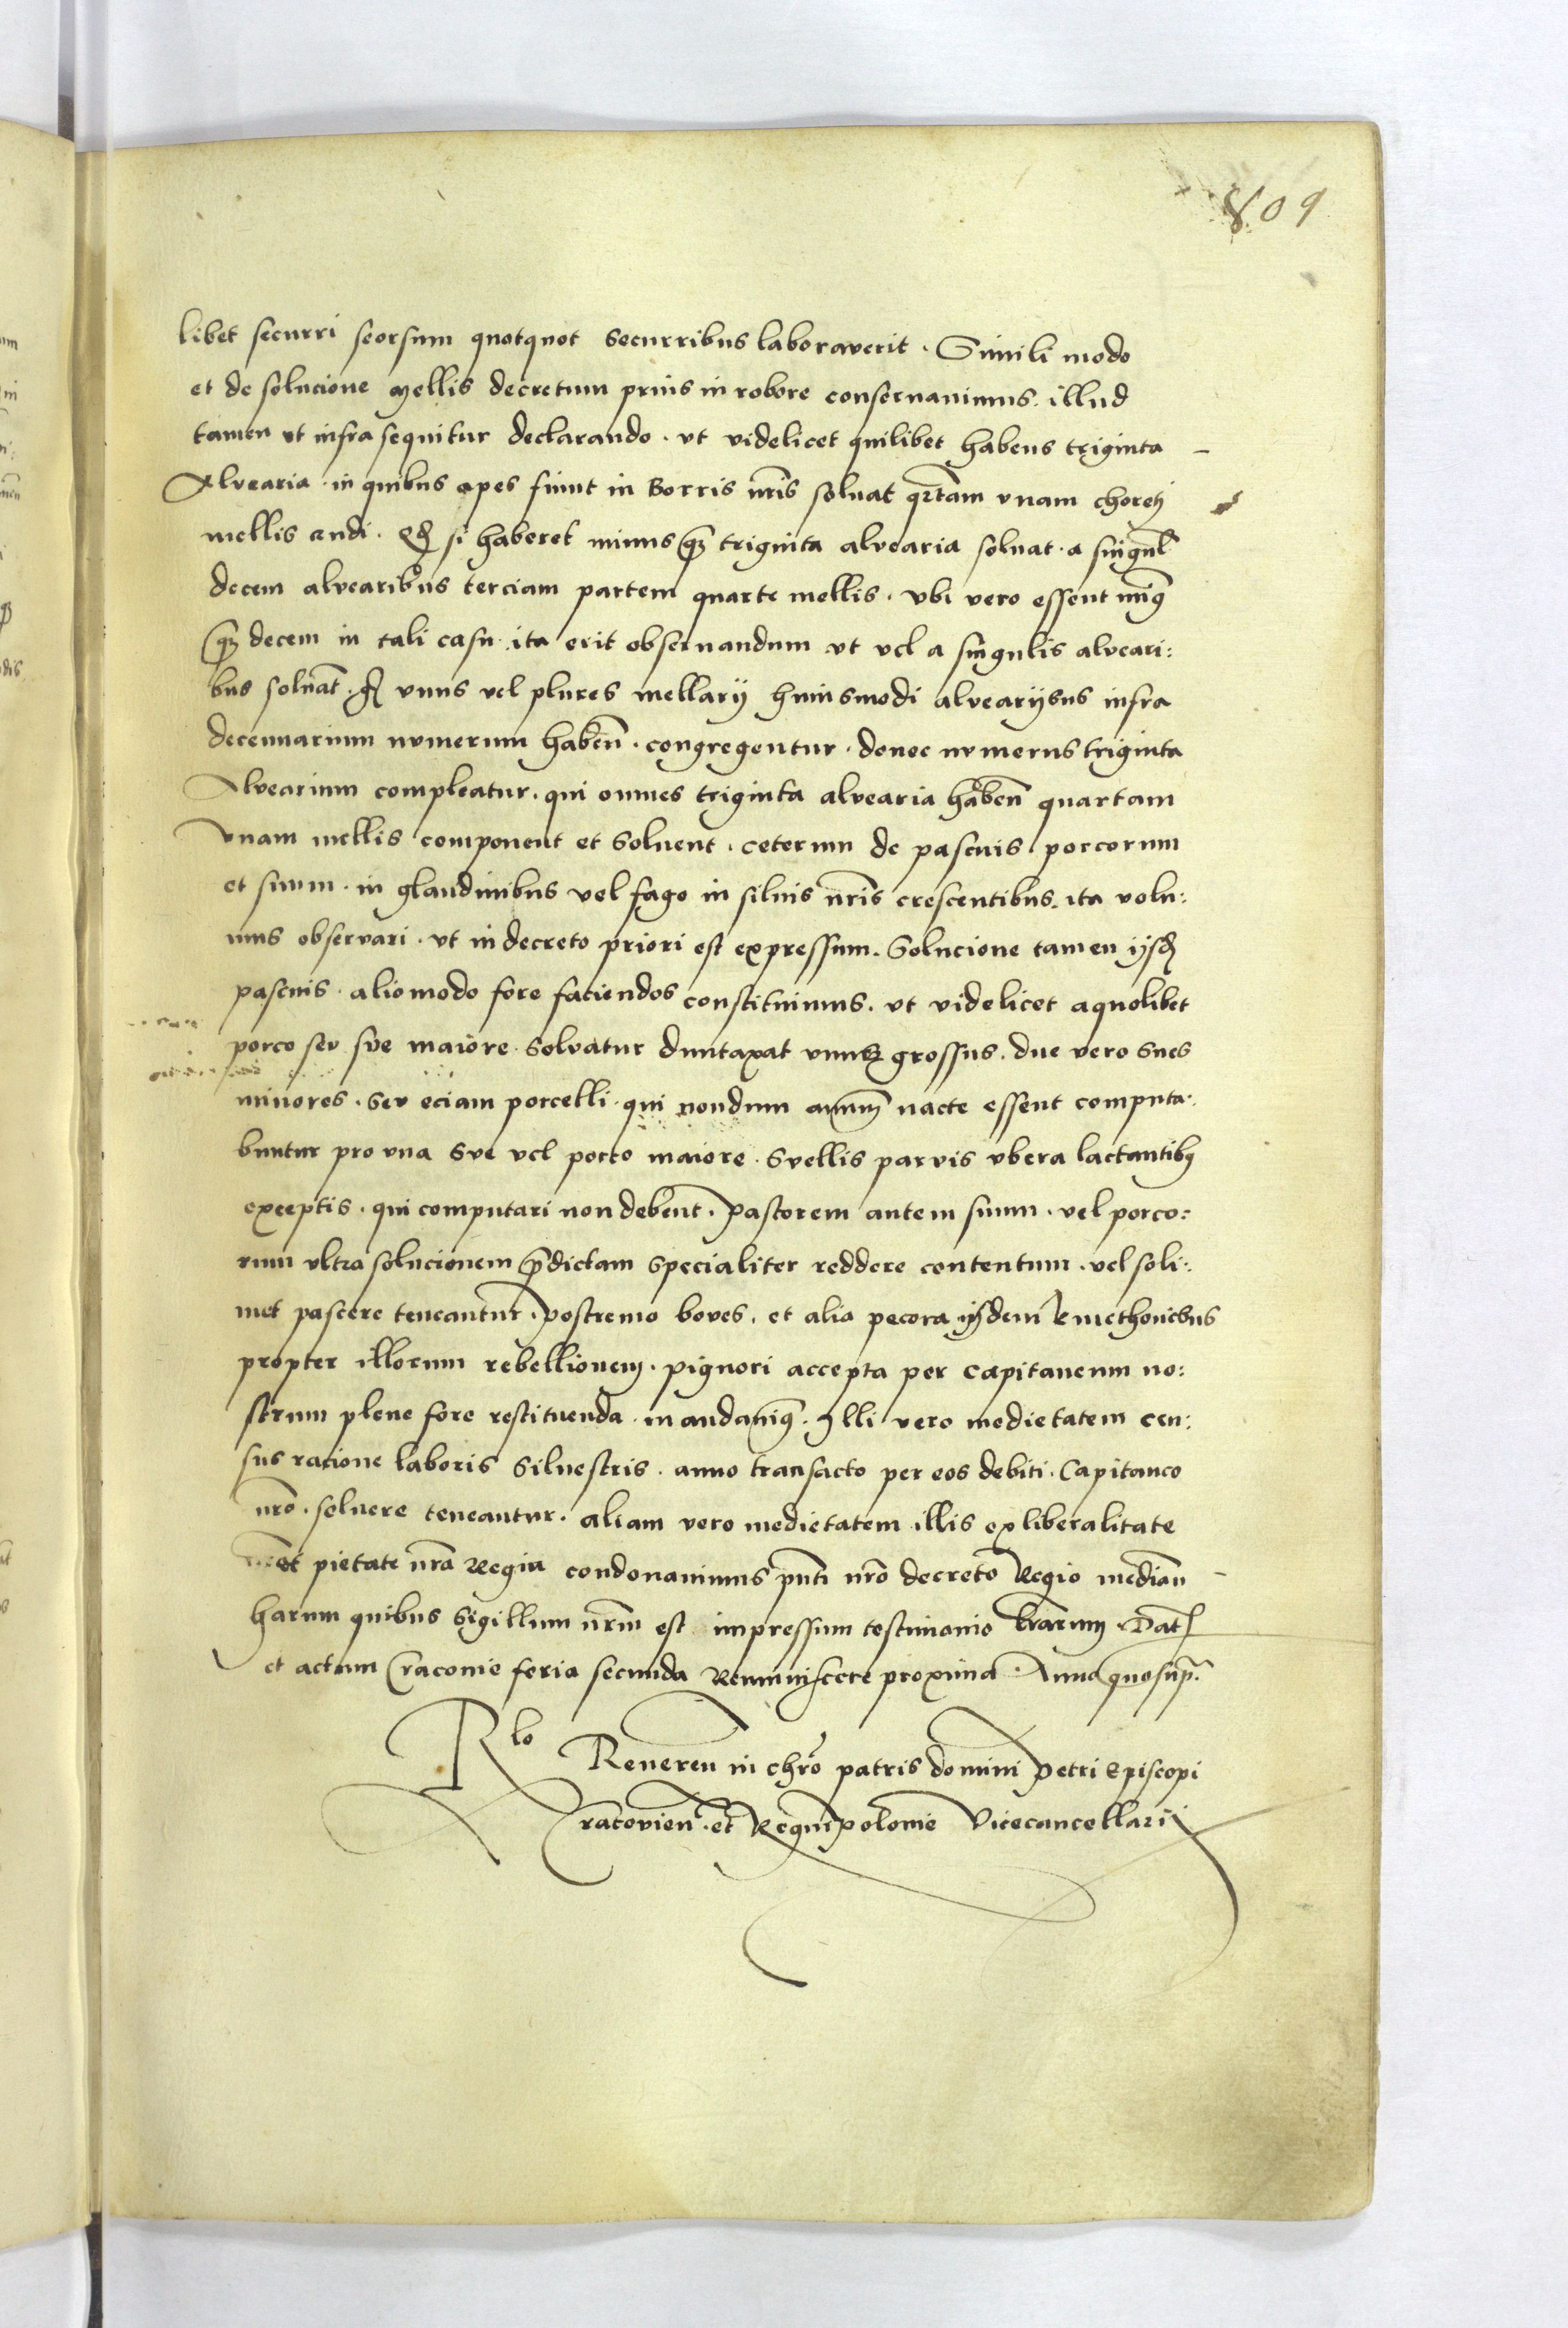 809
libet securri seorsum quotquot securribus laboraverit. Simili modo
et de solucione mellis decretum prius in robore conservavimus. illud
tamen ut infra sequitur declarando. ut videlicet quilibet habens triginta
Alvearia in quibus apes fiunt in Borris nris solvat qrtam unam
mellis crudi. Qd si haberet minus qz triginta alvearia solvat. a singul
decem alvearibus terciam partem quarte mellis. ubi vero essent minq
qz decem in tali casu ita erit observandum ut vel a singulis alveari:
bus solvat. unus vel plures mellarij huiusmodi alvearijbus infra
decennarium numerum haben. congregentur. donec numerus triginta
Alvearium compleatur. qui omnes triginta alvearia haben quartam
unam mellis component et solvent. ceterum de pascuis porcorum
et suum. in glandinibus vel fago in silvis nris crescentibus. ita volu:
mus observari. ut in decreto priori est expressum. Solucione tamen ijsd
pascuis. alio modo fore faciendos constituimus. ut videlicet a quolibet
porco seu sue maiore. solvatur duntaxat unus grossus. due vero sues
minores. seu eciam porcelli. qui nondum annum nacte essent computa:
buntur pro una sue vel porco maiore. Suellis parvis ubera lactantibq
exceptis. qui computari non debent. Pastorem autem suum. vel porco:
rum ultra solucionem pdictam specialiter reddere contentum. vel soli:
met pascere teneantur. Postremo boves. et alia pecora ijsdem kmethonibus
propter illorum rebellionem. pignori accepta per Capitaneum no:
strum plene fore restituenda. mandamq. Illi vero medietatem cen:
sus racione laboris silvestris. anno transacto per eos debiti. Capitaneo
nro. solvere teneantur. aliam vero medietatem illis ex liberalitate
et pietate nra Regia condonavimus pnti nro decreto Regio median
harum quibus Sigillum nrm est impressum testimonio lrarum. Dat
et actum Cracovie feria secunda Reminiscere proxima. Anno quo sup.
Rlo Reveren in chro patris domini Petri Episcopi
Cracovien. et Regni Polonie Vicecancellarij